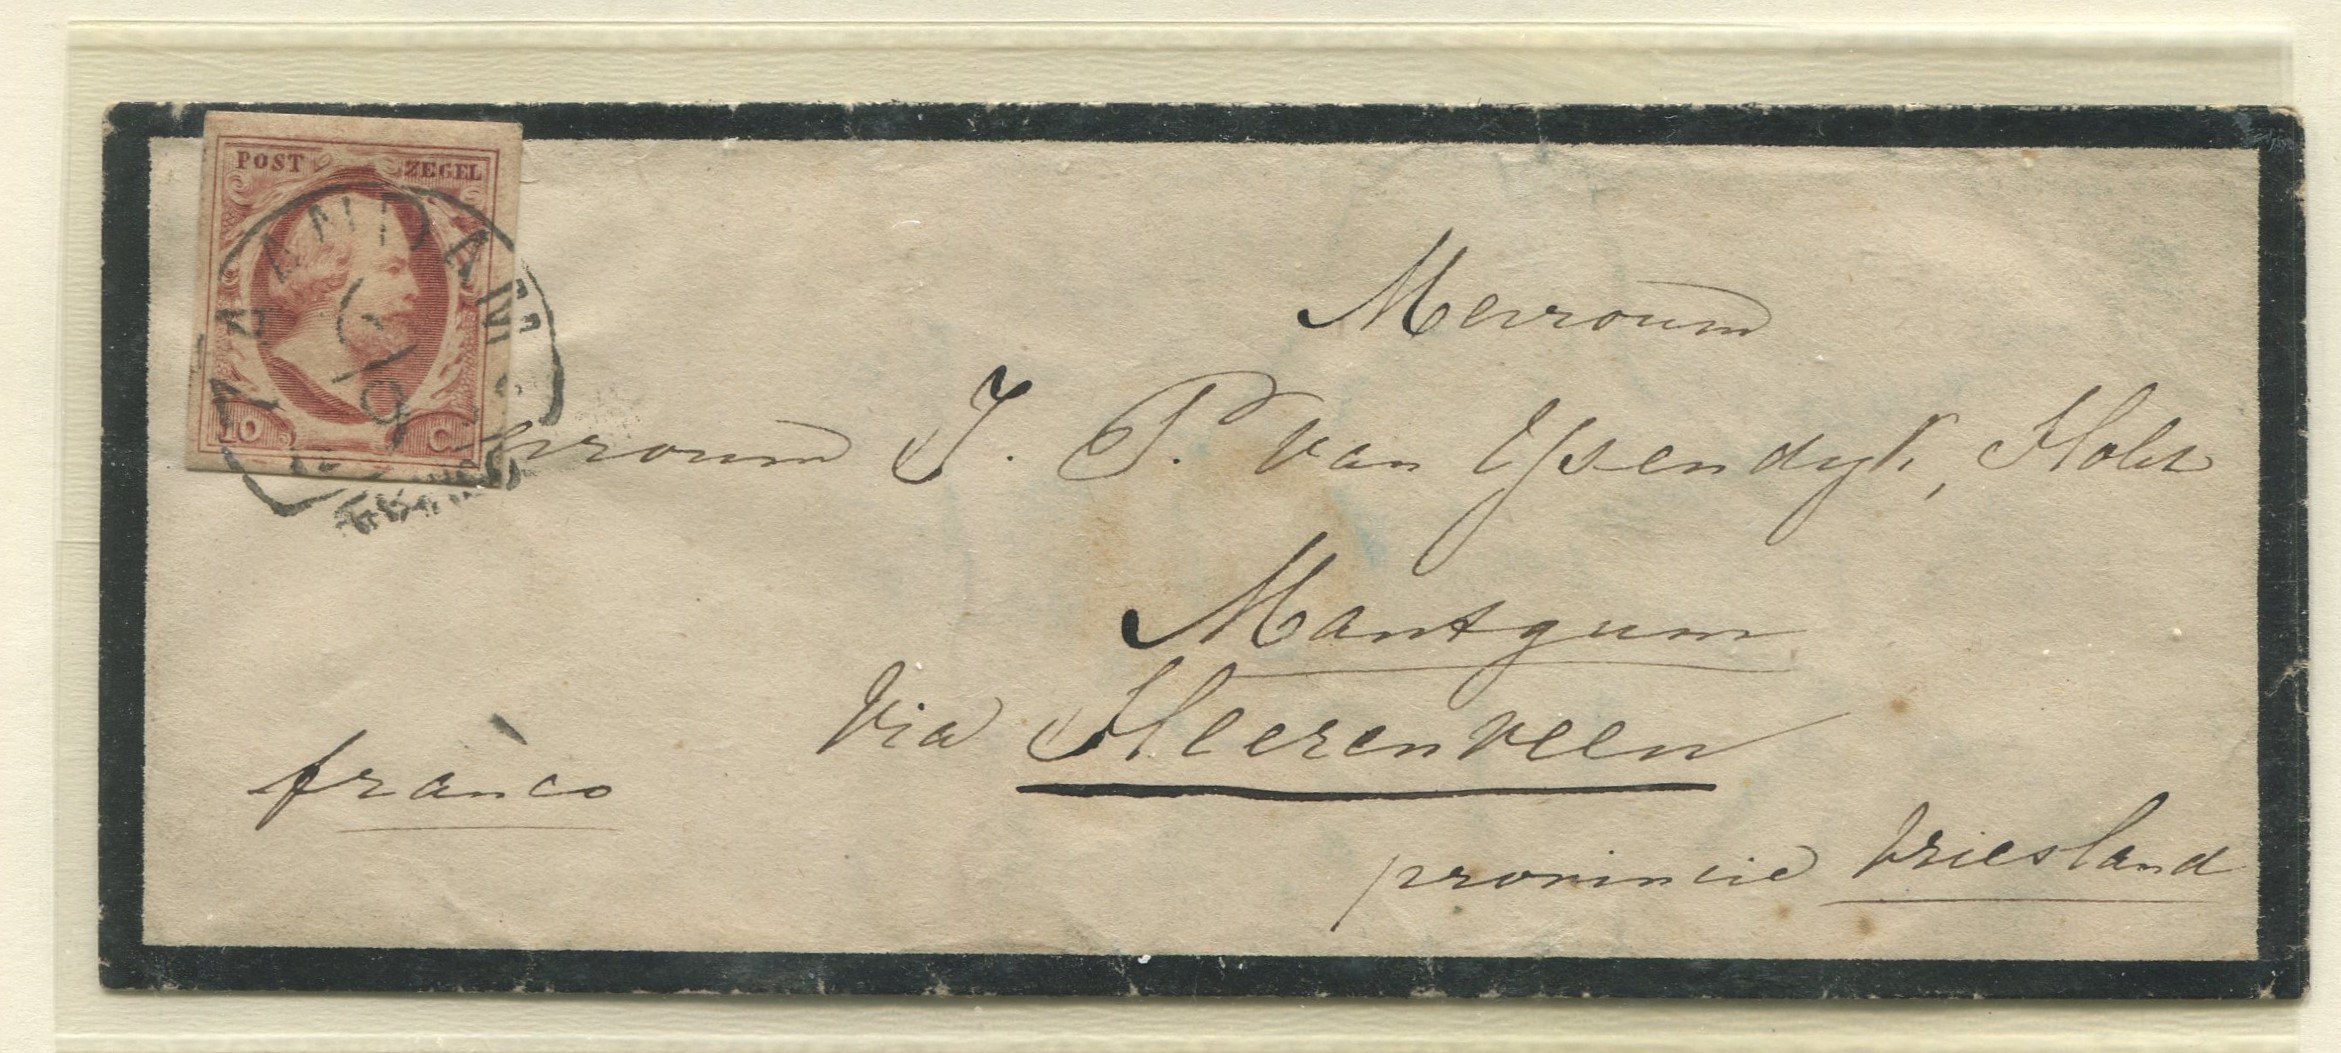 POST ZEGEL
10 C.
ZAANDAM
Mevrouw
Mevrouw J. P. van IJsendijk, Holst
Mantgum
via Heerenveen
franco
provincie Vriesland